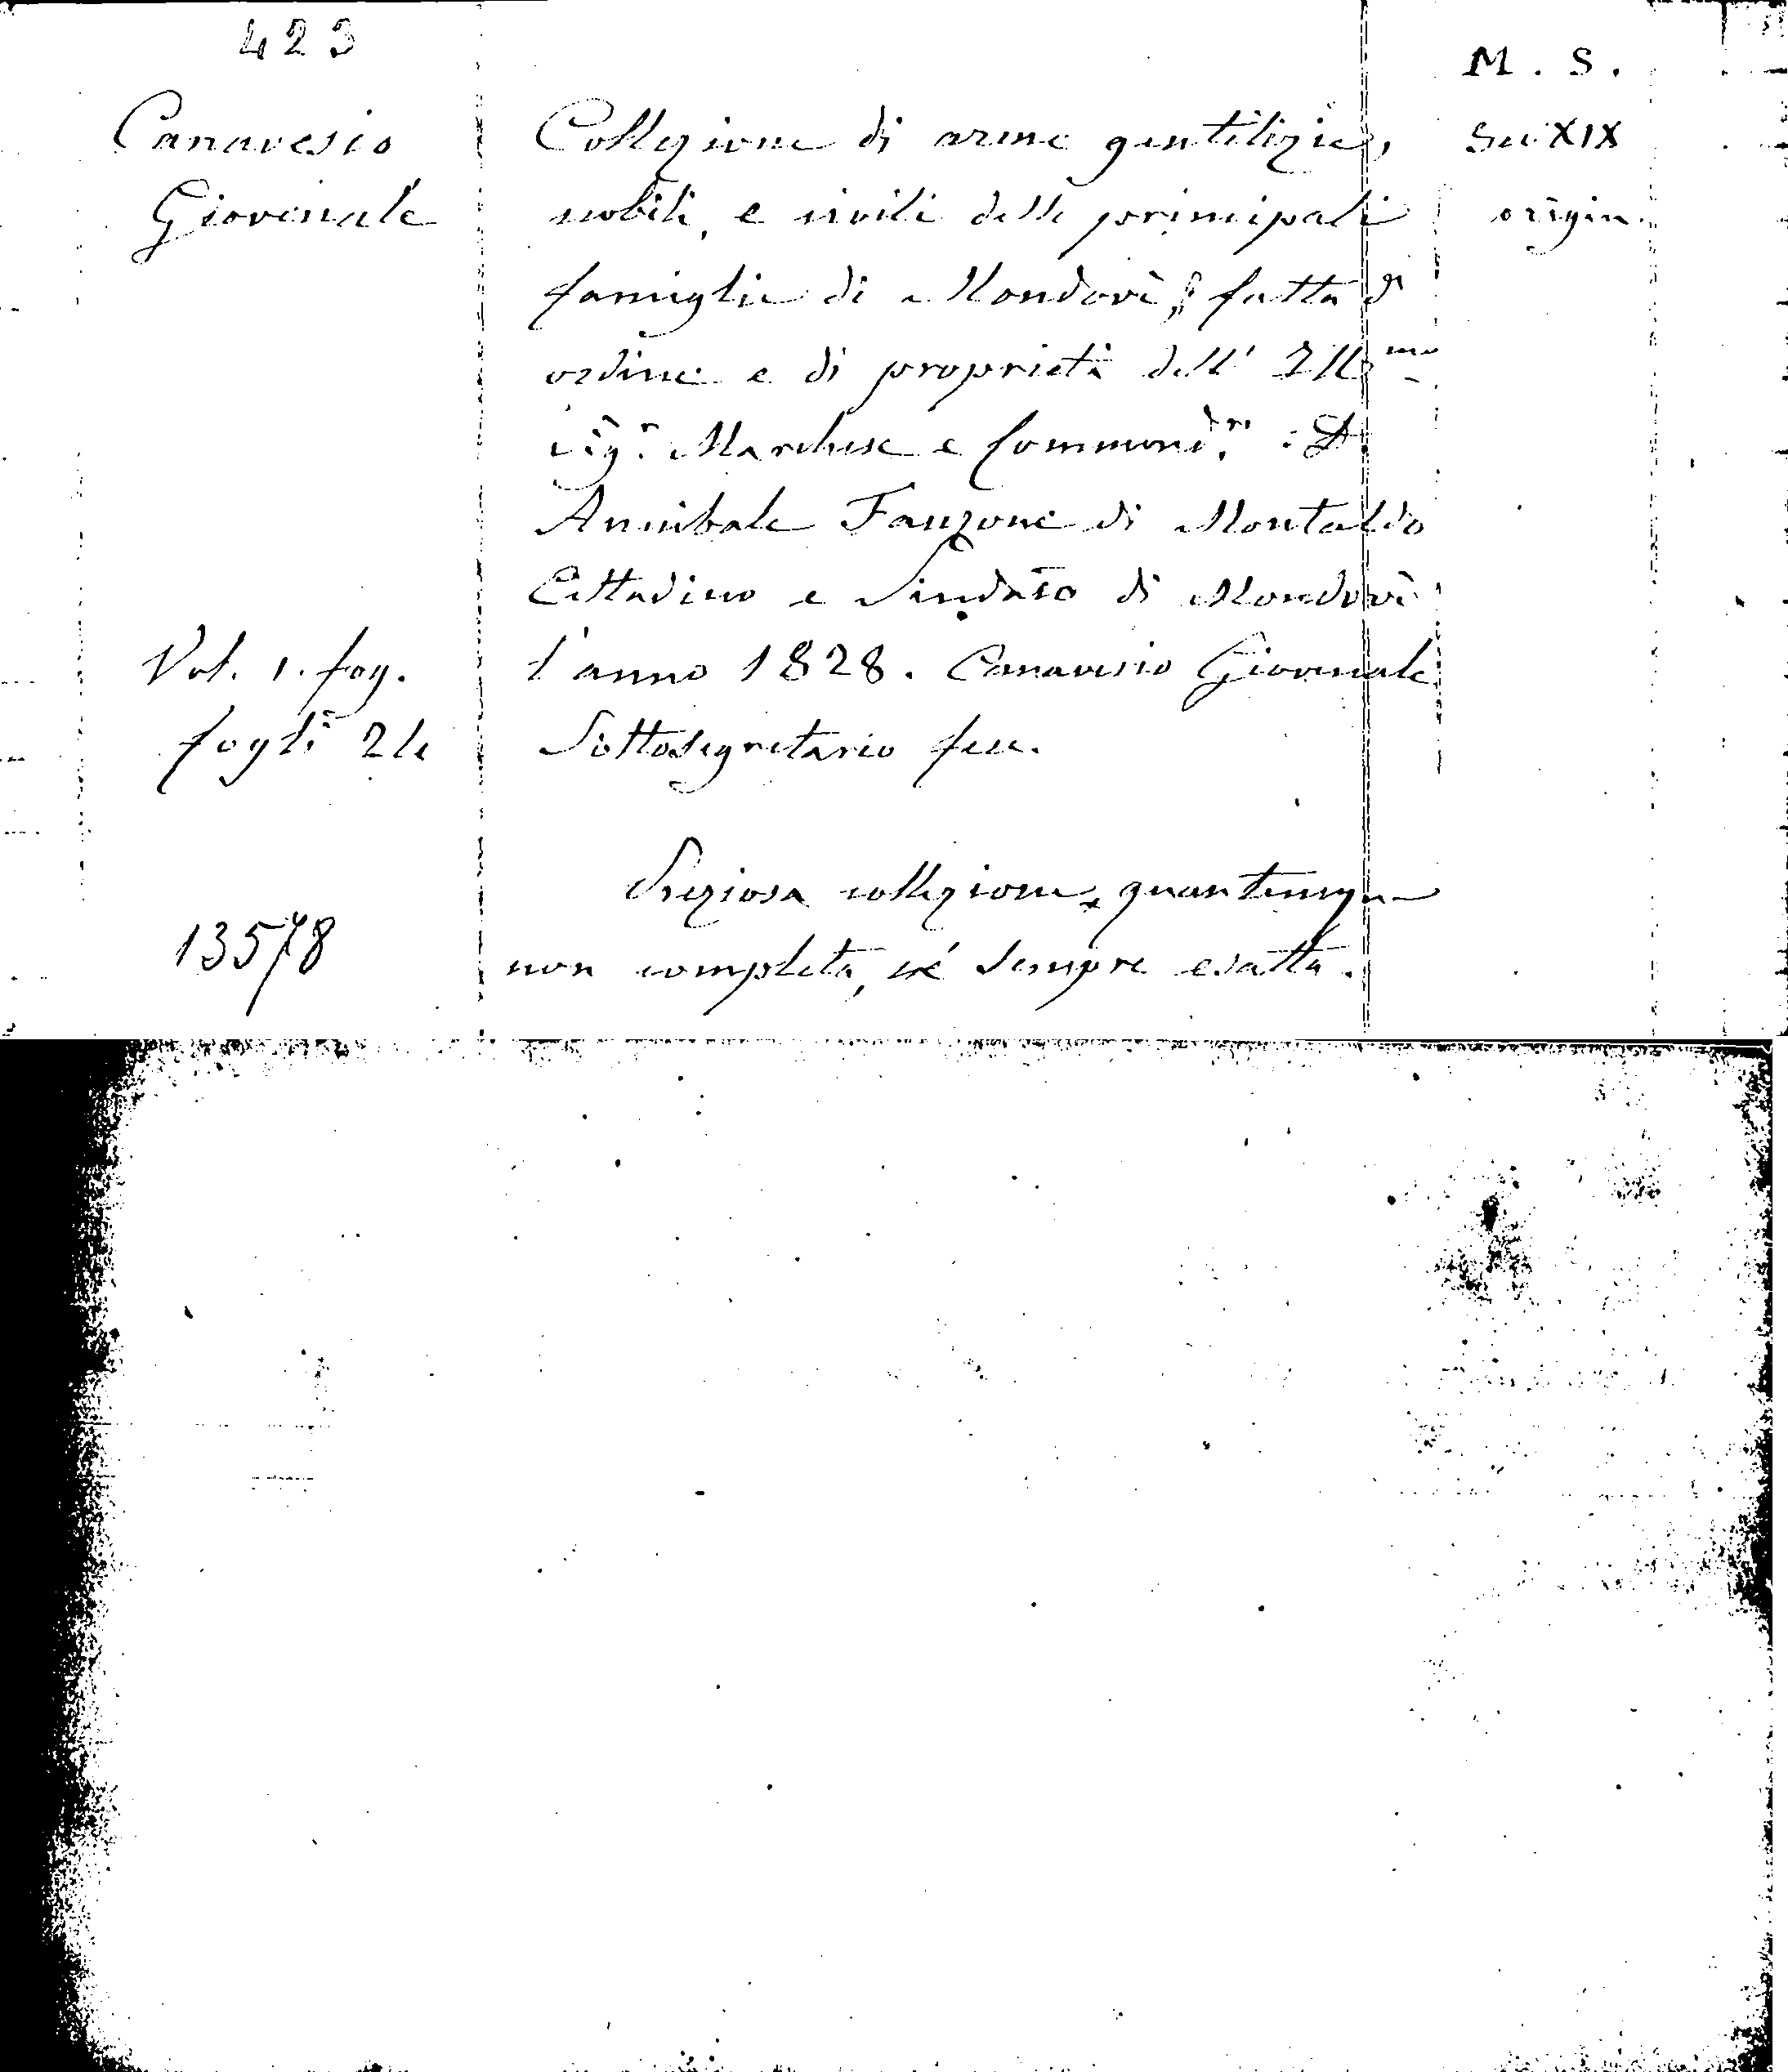 423
M. S.
Canavesio
Giovenale
Sec. XIX
origin.
Collezione di arme gentilizie,
nobili, e civili delle principali
famiglie di Mondovì, fatta d'
ordine e di proprietà dell' Ill.mo
Sig.r Marchese e Command.re D.
Annibale Fauzone di Montaldo
Cittadino e Sindaco di Mondovì
l'anno 1828. Canavesio Giovenale
Sottosegretario fece.
Vol. 1. fog.
fogli 24
Preziosa collezione, quantunque
non completa, nè sempre esatta.
13578